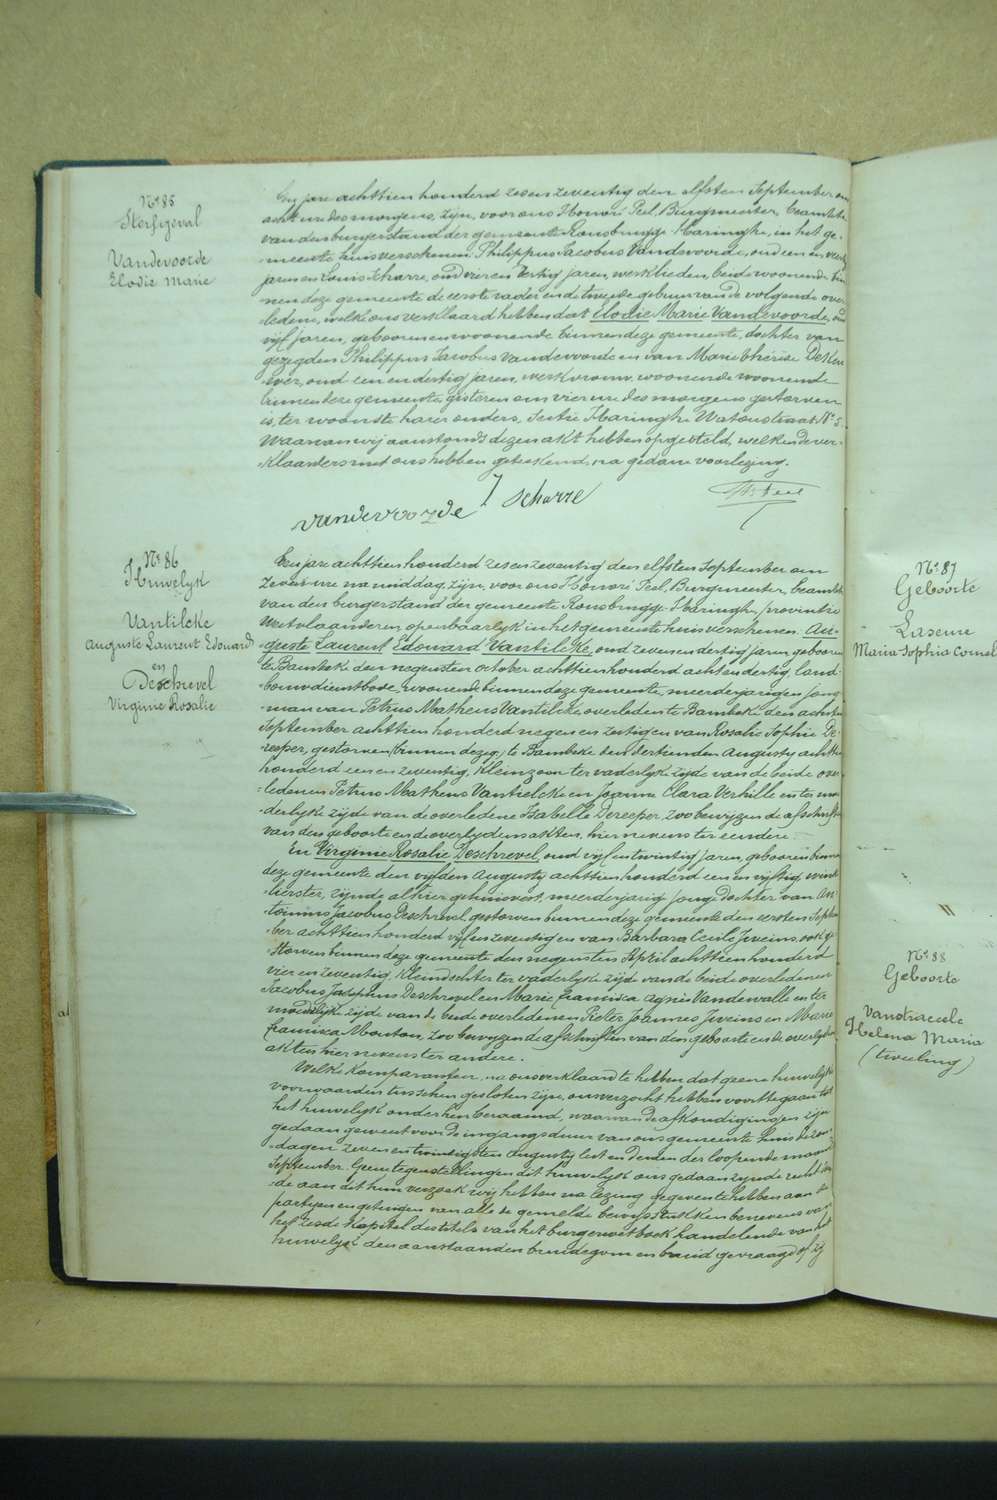 N° 85
Sterfgeval
Vandevoorde
Elodie Marie
Een jare achttien honderd zesenzeventig den elfsten September om
acht ure des morgens, zijn, voor ons Honoré Peel, Burgmeester, beambte
van den burgerstand der gemeente Rousbrugge-Haringhe, in het ge-
meente huis verschenen Philippus Jacobus Vandevoorde, oud een en
jaren en Louis Scharre, oud vier en veertig jaren, werklieden, beide woonende bin
nen deze gemeente de eerste vader en de tweede gebuur van de volgende over
ledene, welke ons verklaard hebben dat Elodie Marie Vandevoorde, oud
vijf jaren, geboren en woonende binnen deze gemeente, dochter van
gezegden Philippus Jacobus Vandevoorde en van Marie Thérèse
oud een en dertig jaren, werkvrouw, woonende woonende
binnen deze gemeente gisteren om vier ure des morgens gestorven
is, ter woonste harer ouders, Sectie Haringhe Watoustraat N° 5
Waarvan wij aanstonds dezen akt hebben opgesteld, welken de ver-
klaarders met ons hebben geteekend, na gedane voorlezing.
Vandevoorde
Scharre
H. Peel
N° 86
Huwelijk
Vantilcke
Auguste Laurent Edouard
en
Deschrevel
Virginie Rosalie
Een jare achttien honderd zesenzeventig den elfsten September om
zeven ure na middag, zijn, voor ons Honoré Peel, Burgmeester, beambte
van den burgerstand der gemeente Rousbrugge-Haringhe, provintie
Westvlaanderen, openbaarlijk in het gemeente huis verschenen: Au-
guste Laurent Edouard Vantilcke, oud zevenendertig jaren, geboren
te Bambeke den negensten October achttien honderd achtendertig, land-
bouwdienstbode, woonende binnen deze gemeente, meerderjarigen jong-
man van Petrus Matheus Vantilcke, overleden te Bambeke den achtsten
September achttien honderd negen en zestig en van Rosalie Sophie De-
reeper, gestorven (binnen dezeg) te Bambeke den dertienden Augusty achttien
honderd een en zeventig, kleinzoon ter vaderlyke zijde van de beide over-
ledenen Petrus Matheus Vantielcke en Joanna Clara Verhille en ter moe
derlyke zijde van de overledene Isabelle Dereeper, zoo bewijzen de afschriften
van den geboorte en de overlydensakten, hiernevens ter eendere.
En Virginie Rosalie Deschrevel, oud vijfentwintig jaren, geboren binnen
deze gemeente den vijfden Augusty achttien honderd een en vijftig, wink
lierster, zijnde alhier gehuisvest, meerderjarige jonge dochter van An-
tonius Jacobus Deschrevel, gestorven binnen deze gemeente den eersten Septem
ber achttien honderd vijfenzeventig en van Barbara Cecile Jveins, ook ge
storven binnen deze gemeente den negensten April achttien honderd
vier en zeventig, kleindochter ter vaderlyke zijde van de beide overledenen
Jacobus Josephus Deschrevel en Marie Francisca Agnes Vandewalle en ter
moederlyke zijde van de beide overledenen Pieter Joannes Jveins en Marie
Francisca Mouton, zoo bewijzen de afschriften van den geboorte en de overlydens
akten hiernevens ter andere.
Welke komparanten, na ons verklaard te hebben dat geene huwelyks
voorwaarden tusschen gesloten zijn, ons verzocht hebben voort te gaan tot
het huwelyk onder hen beraamd, waarvan de afkondigingen zijn
gedaan geweest voor de ingangsduur van ons gemeente huis de zon-
dagen zeven en twintigsten Augusty lest en derden der loopende maand
September. Geene tegenstellingen dit huwelyk ons gedaan zijnde recht doen
de aan dit hun verzoek wij hebben na lezing gegeven te hebben aan de
partyen en getuigen van alle de gemelde bewysstukken benevens van
het zesde kapitel des titels van het burgerwetboek handelende van het
huwelyk den aanstaanden bruidegom en bruid gevraagd of zij
N° 87
Geboorte
Laseure
Maria-Sophia Cornel
N° 88
Geboorte
Vanstraceele
Helena Maria
(tweeling)